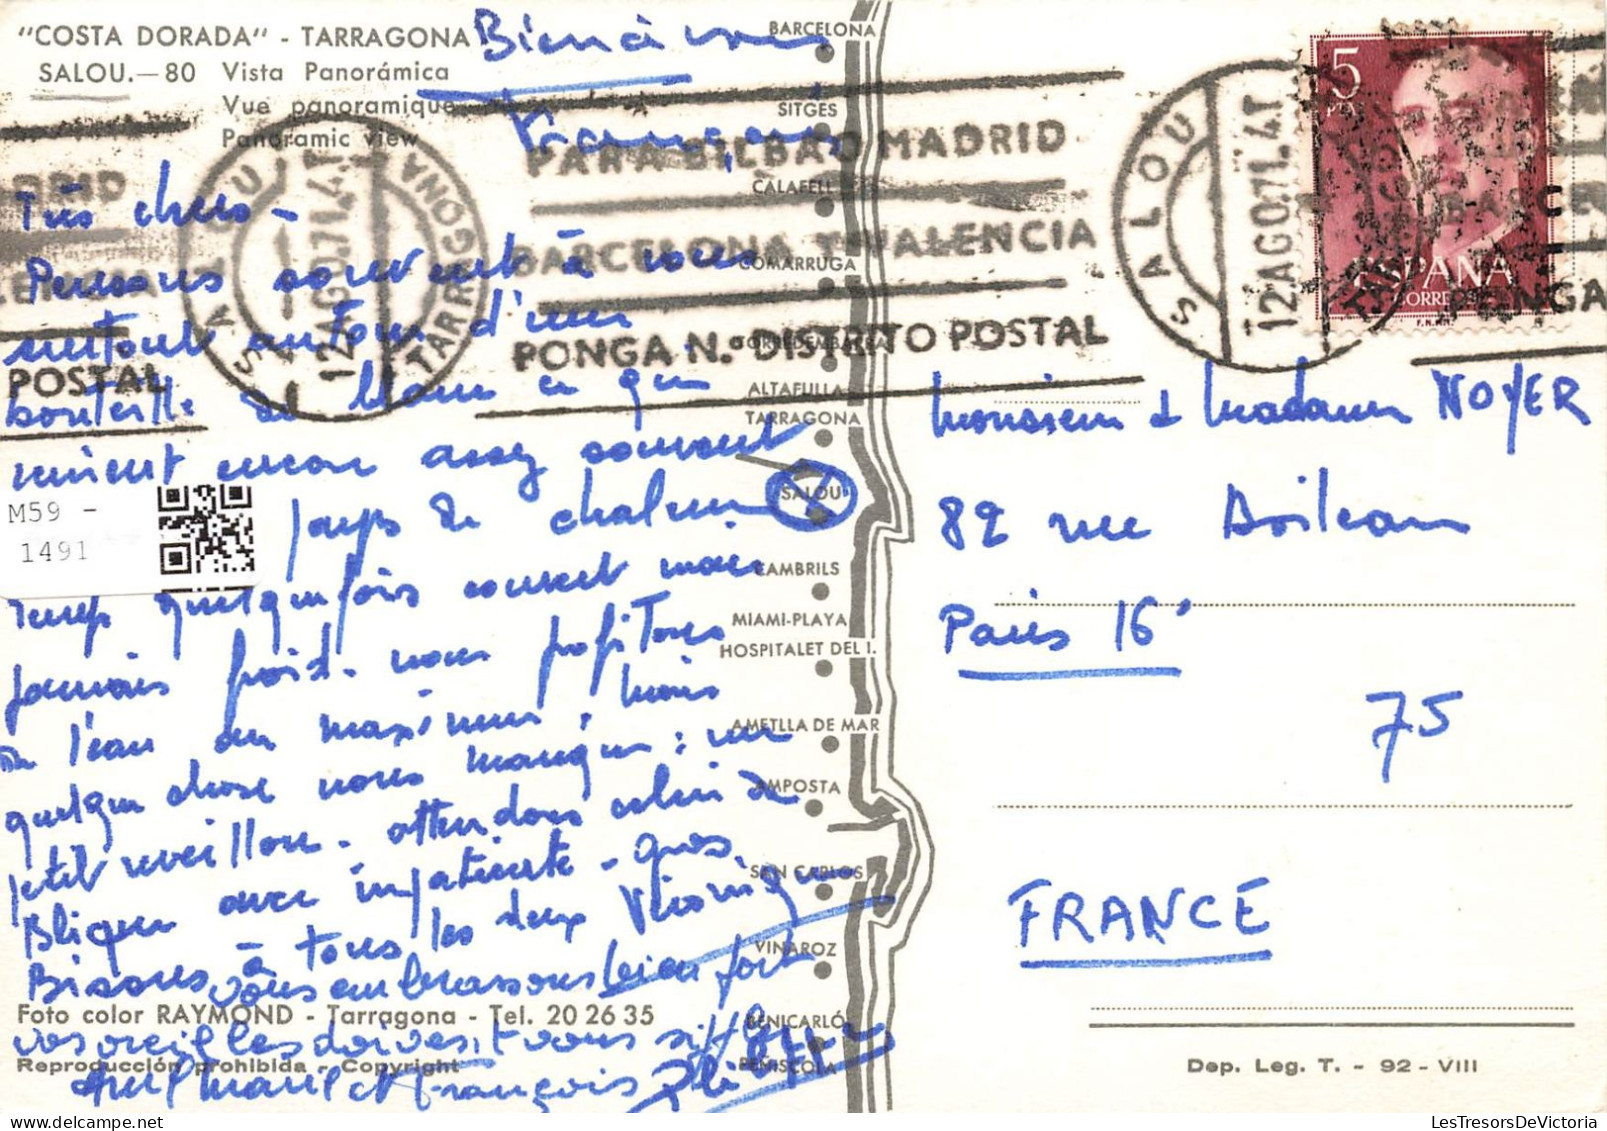 "COSTA DORADA" - TARRAGONA
SALOU.—80 Vista Panorámica
Vue panoramique
Panoramic view
Bien à vous
François
Très chers -
Pensons souvent à vous
surtout autour d'une
bouteille de blanc ce qui
nous vient encore assez souvent
pays de chaleur
temps quelquefois couvert mais
jamais froid. nous profitons
de l'eau au maximum, mais
quelque chose nous manque : un
petit reveillon. attendons celui de
avec impatience - gros
Bisous à tous les deux Véronique
vous embrassons bien fort
vos oreilles doivent vous siffler
et François
M59 -
1491
Foto color RAYMOND - Tarragona - Tel. 20 26 35
Reproducción prohibida - Copyright
BARCELONA
SITGÉS
CALAFELL
COMARRUGA
TORREDEMBARRA
ALTAFULLA
TARRAGONA
SALOU
CAMBRILS
MIAMI-PLAYA
HOSPITALET DEL I.
AMETLLA DE MAR
AMPOSTA
SAN CARLOS
VINAROZ
BENICARLÓ
PEÑISCOLA
PARA BILBAO MADRID
BARCELONA Y VALENCIA
PONGA N.º DISTRITO POSTAL
SALOU
12AGO71.4T
TARRAGONA
SALOU
12AGO71.4T
POSTAL
PONGA
5
PTAS
ESPAÑA
CORREOS
F.N.M.T.
Monsieur & Madame NOYER
82 rue Boileau
Paris 16e
75
FRANCE
Dep. Leg. T. - 92 - VIII
LesTresorsDeVictoria.com